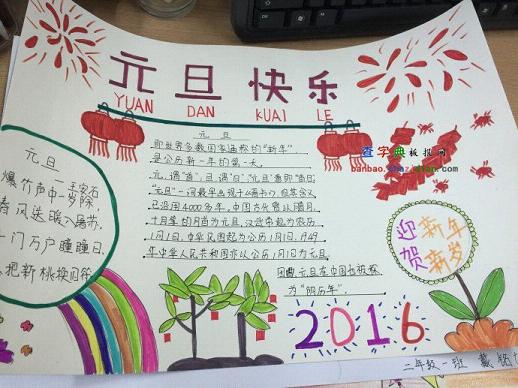 元旦快乐
YUAN DAN KUAI LE
元旦
王安石
爆竹声中一岁除
春风送暖入屠苏
千门万户曈曈日
总把新桃换旧符
元旦
即世界多数国家通称的“新年”
是公历新一年的第一天。
元,谓“首”,旦,谓“日”,“元旦”意即“首日”
已沿用4000多年。中国古代曾以腊月、
十月等的月首为元旦,汉武帝起为农历
1月1日,中华民国起为公历1月1日,1949
年中华人民共和国亦以公历1月1日为元旦
因此元旦在中国也被称
为“阳历年”
查字典板报网
banbao.chazidian.com
迎新年
贺新岁
2016
二年级一班